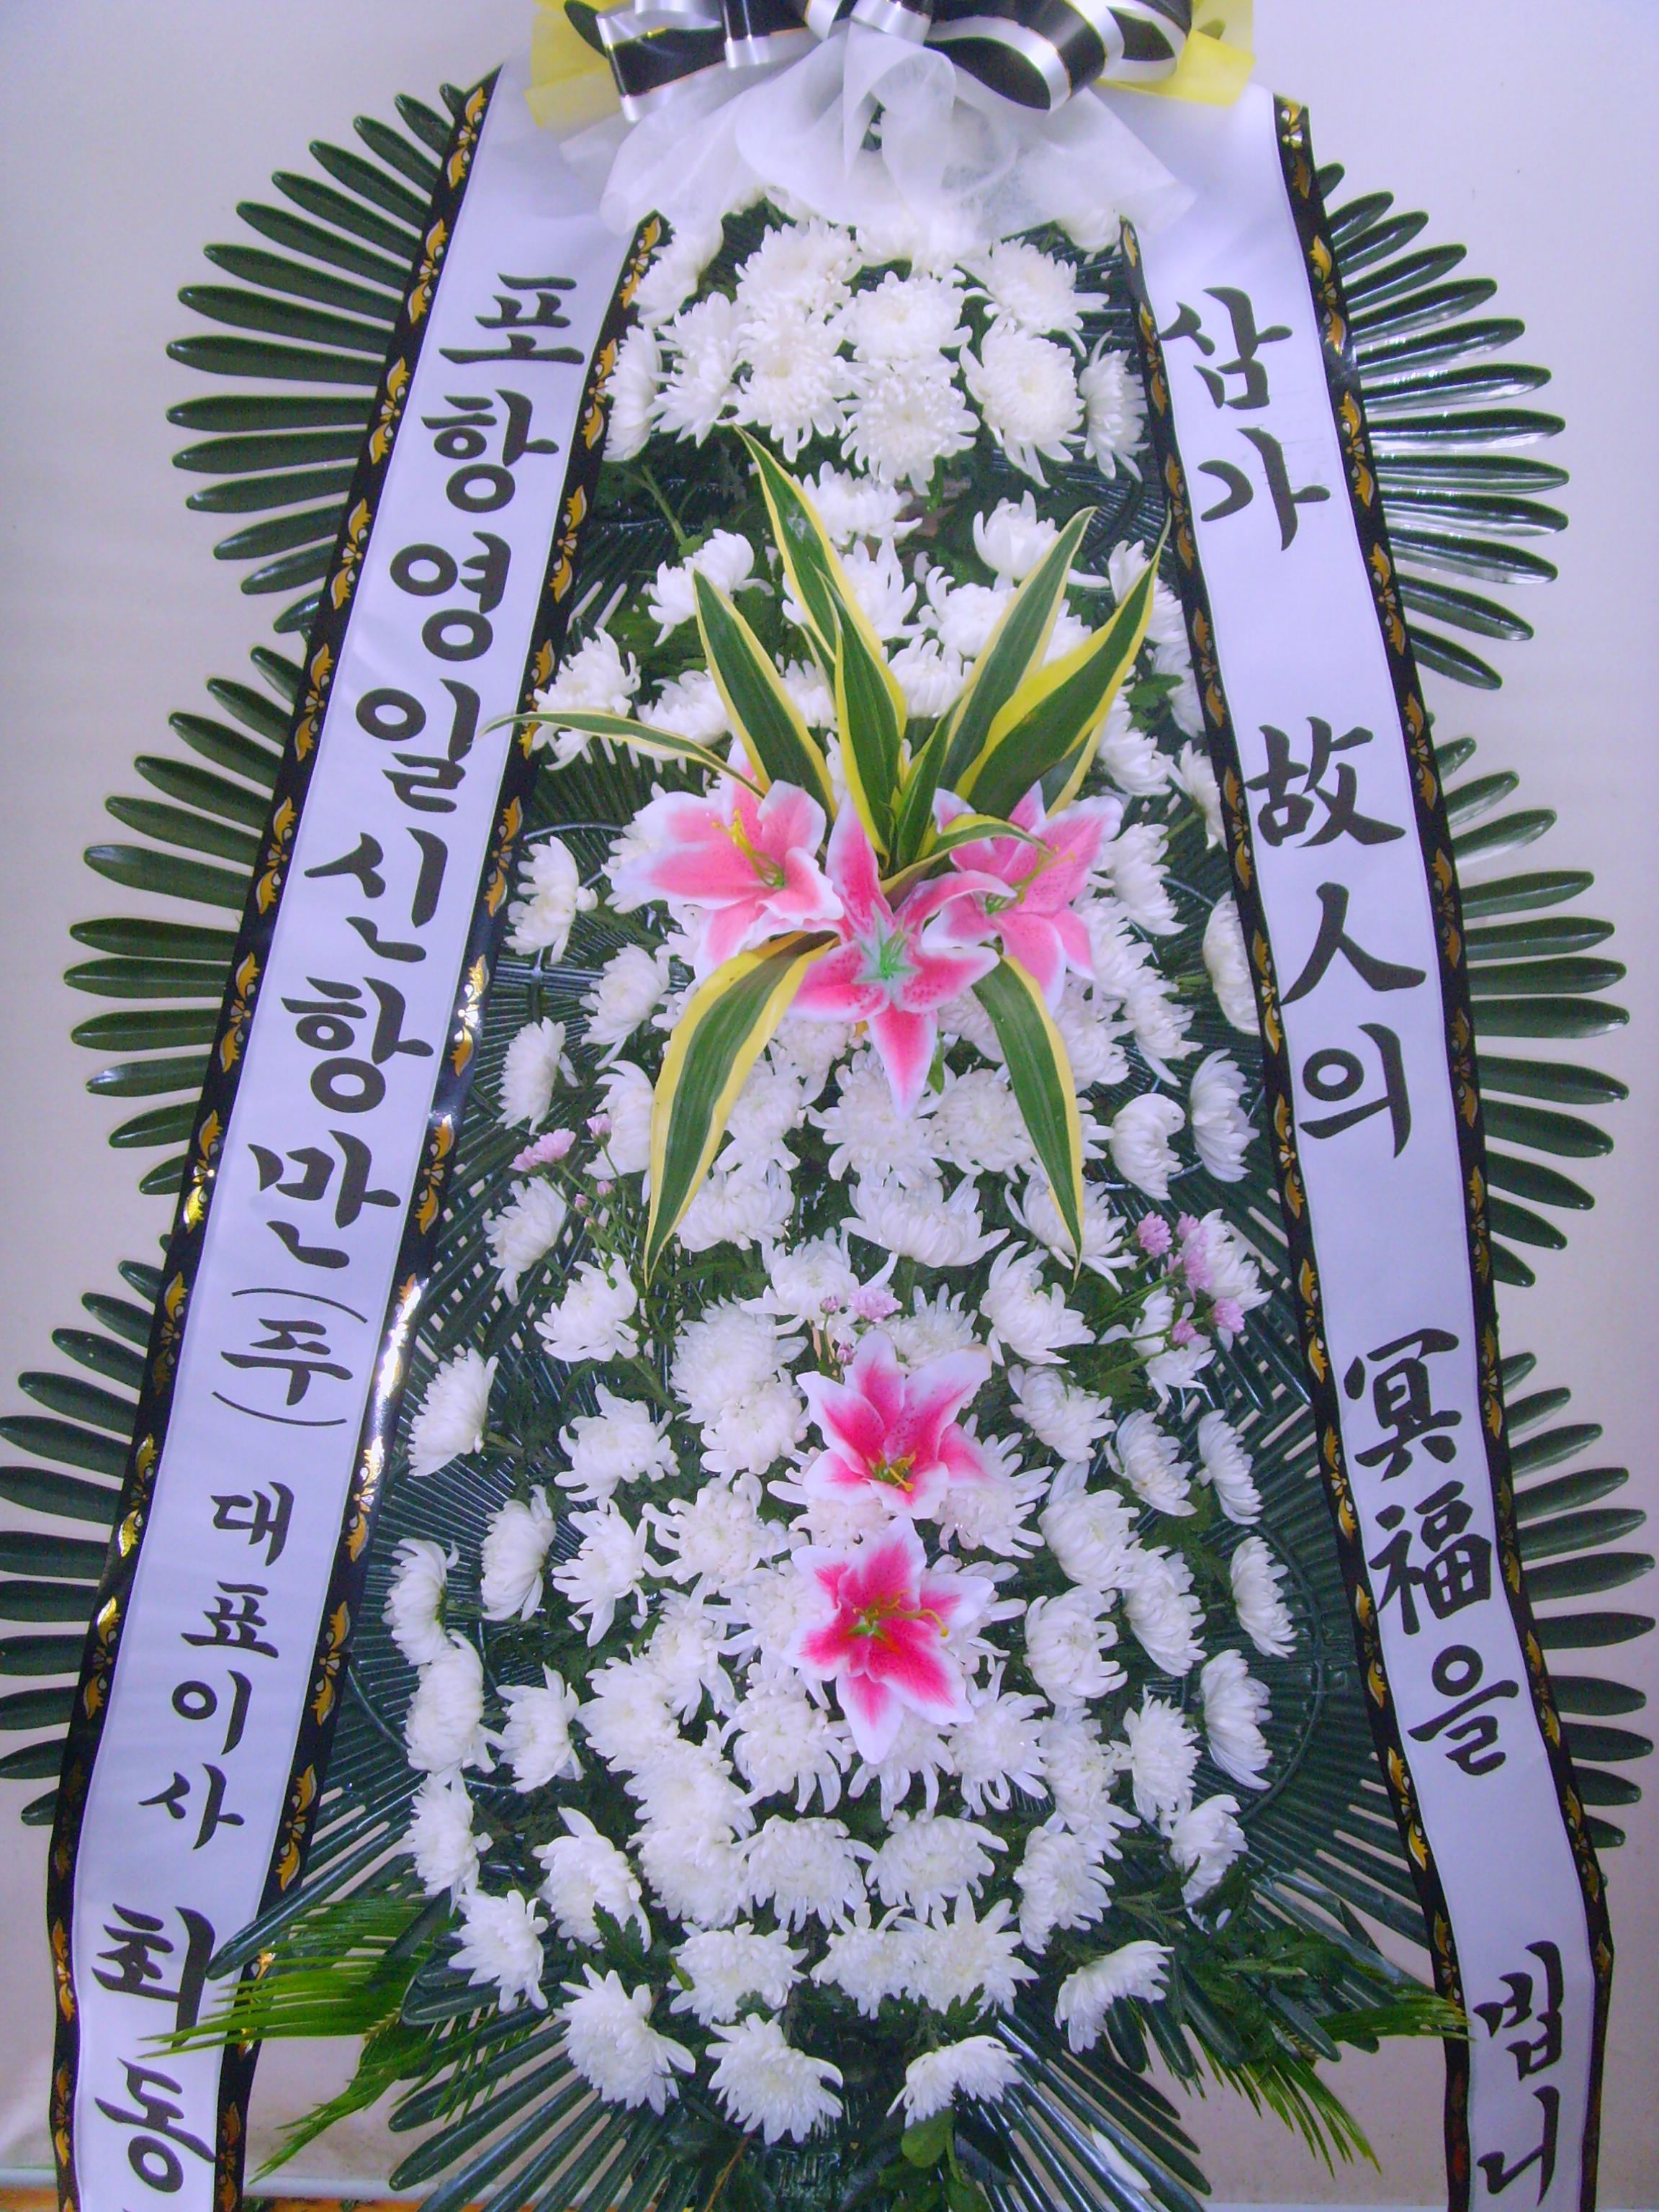 포항영일신항만(주) 대표이사 최동
삼가 故人의 冥福을 빕니